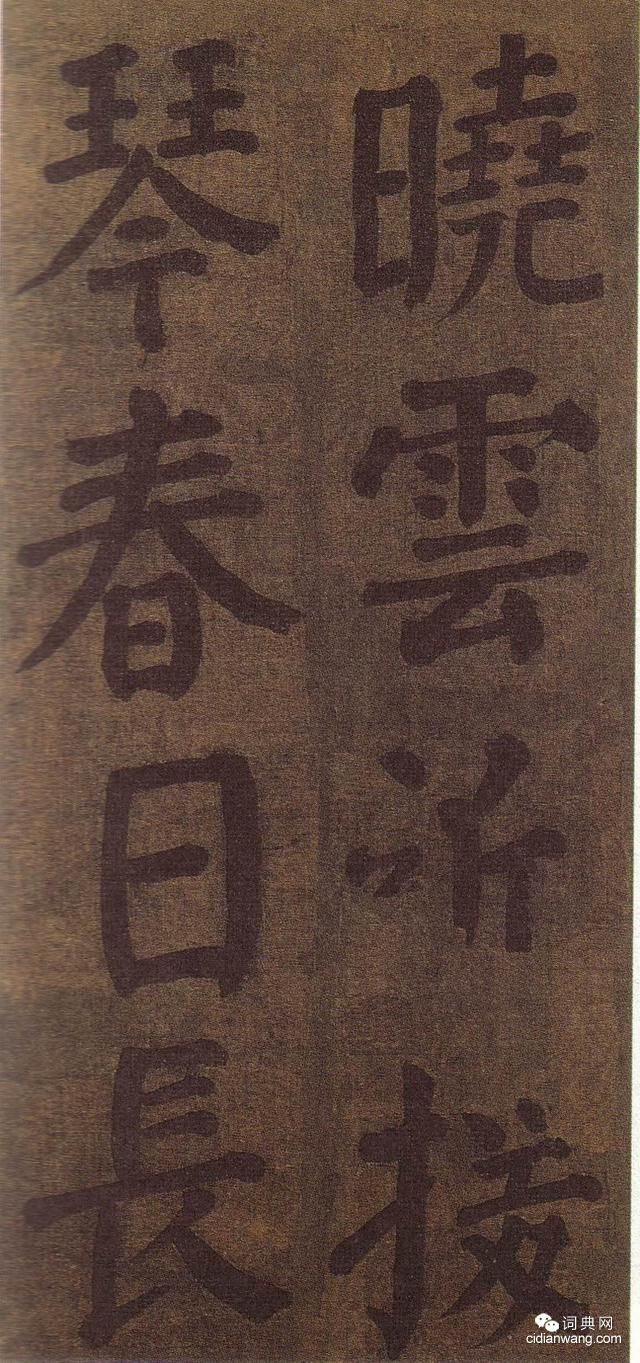 曉雲所接
琴春日長
词典网
cidianwang.com